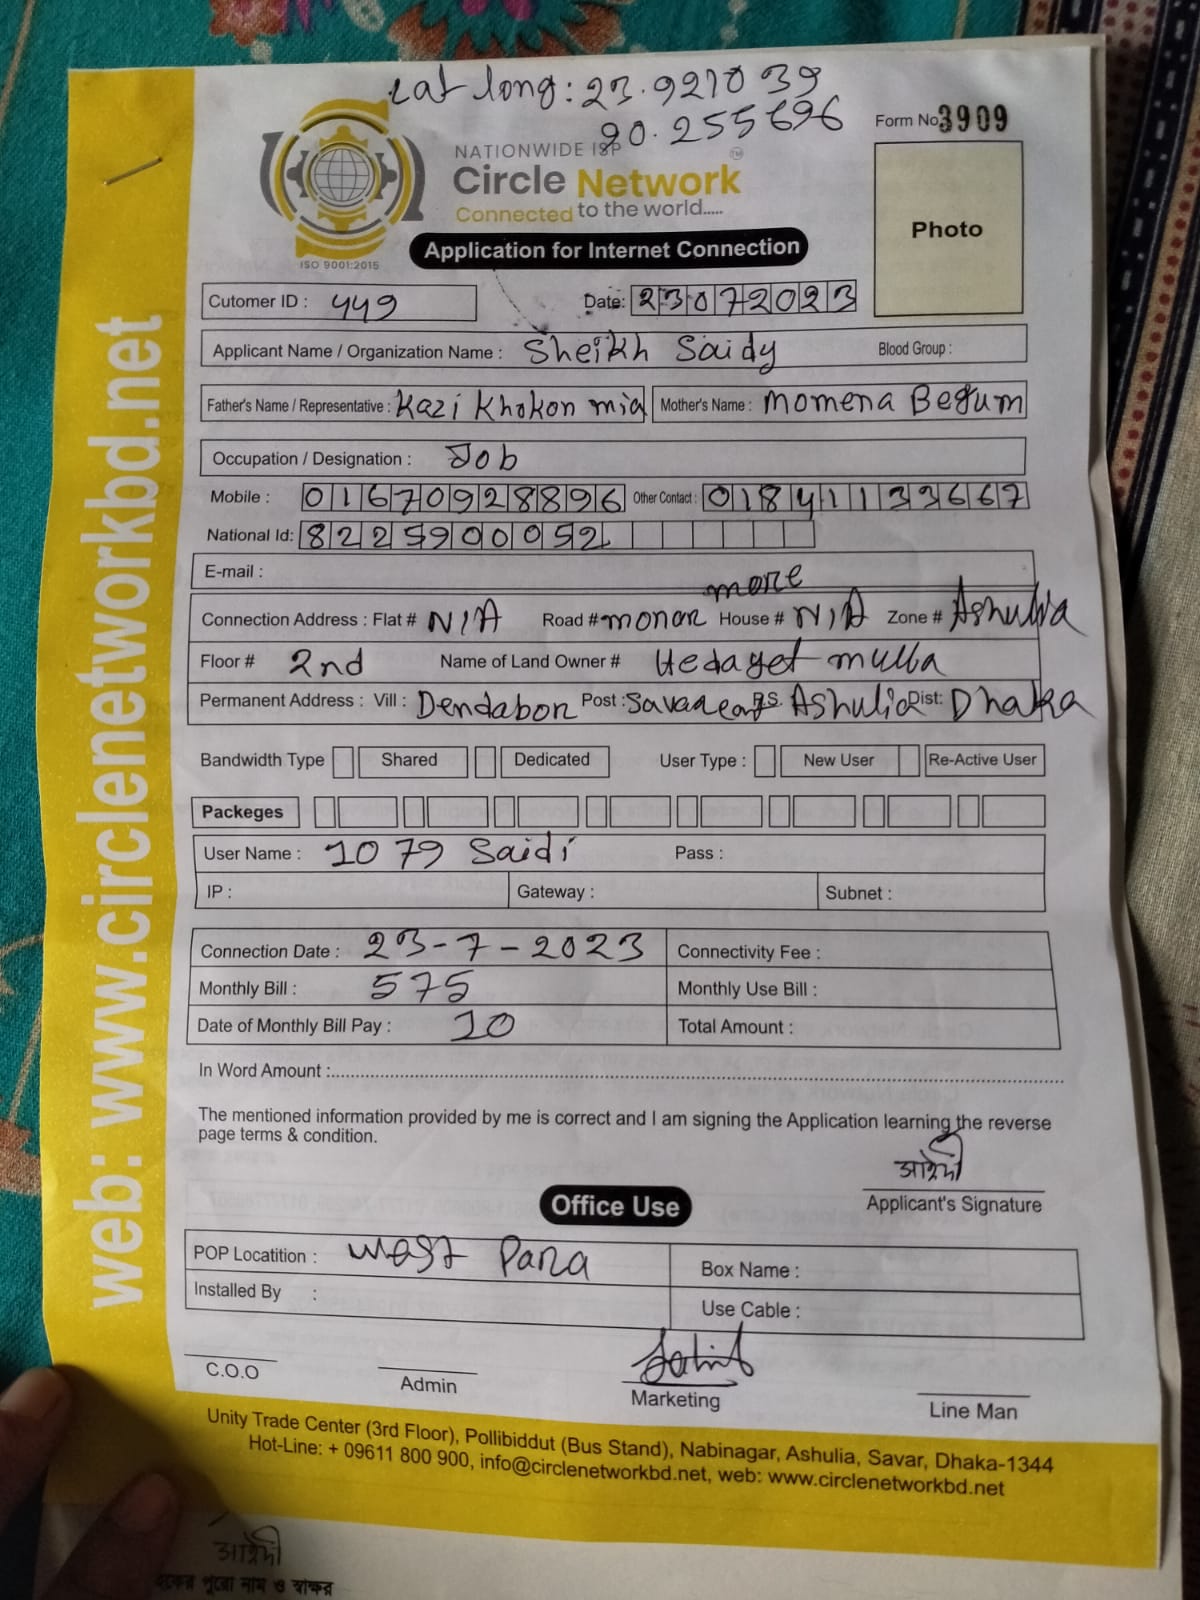 Lat long: 23.921039
90.255696
Form No 3909
NATIONWIDE ISP
Circle Network
TM
Connected to the world.....
ISO 9001:2015
Application for Internet Connection
Photo
Cutomer ID : 449 Date: 23072023
Applicant Name / Organization Name : Sheikh Saidy Blood Group :
Father's Name / Representative : Kazi Khokon mia Mother's Name : Momena Begum
Occupation / Designation : Job
Mobile : 01670928896 Other Contact : 01841133667
National Id: 8225900052
E-mail :
more
Connection Address : Flat # N/A Road # monar House # N/A Zone # Ashulia
Floor # 2nd Name of Land Owner # Hedayet mulla
Permanent Address : Vill : Dendabor Post : Savar P.S. Ashulia Dist: Dhaka
Bandwidth Type Shared Dedicated User Type : New User Re-Active User
Packeges
User Name : 1079 Saidi Pass :
IP : Gateway : Subnet :
Connection Date : 23-7-2023 Connectivity Fee :
Monthly Bill : 575 Monthly Use Bill :
Date of Monthly Bill Pay : 10 Total Amount :
In Word Amount :
The mentioned information provided by me is correct and I am signing the Application learning the reverse
page terms & condition.
Applicant's Signature
Office Use
POP Locatition : West Para Box Name :
Installed By : Use Cable :
C.O.O Admin Marketing Line Man
Unity Trade Center (3rd Floor), Pollibiddut (Bus Stand), Nabinagar, Ashulia, Savar, Dhaka-1344
Hot-Line: + 09611 800 900, info@circlenetworkbd.net, web: www.circlenetworkbd.net
web: www.circlenetworkbd.net
পুরো নাম ও স্বাক্ষর